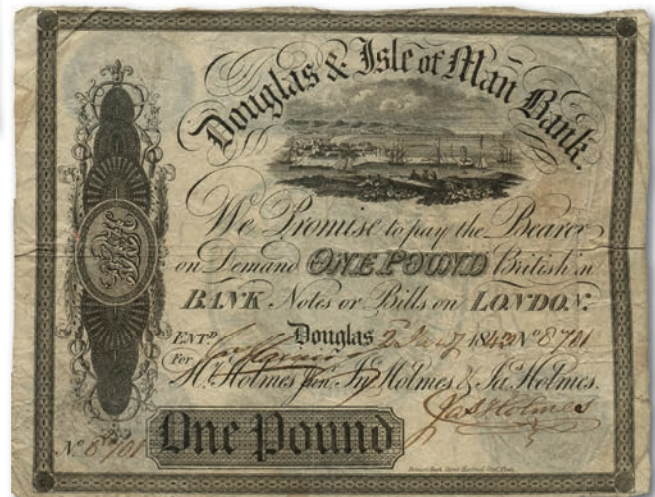 Douglas & Isle of Man Bank.
We Promise to pay the Bearer
on Demand ONE POUND British in
BANK Notes or Bills on LONDON.
ENT.D Douglas 2 Jany 1843 No 8701
For
Hy. Holmes Junr. Jno. Holmes & Jas. Holmes.
Jas Holmes
No 8701 One Pound